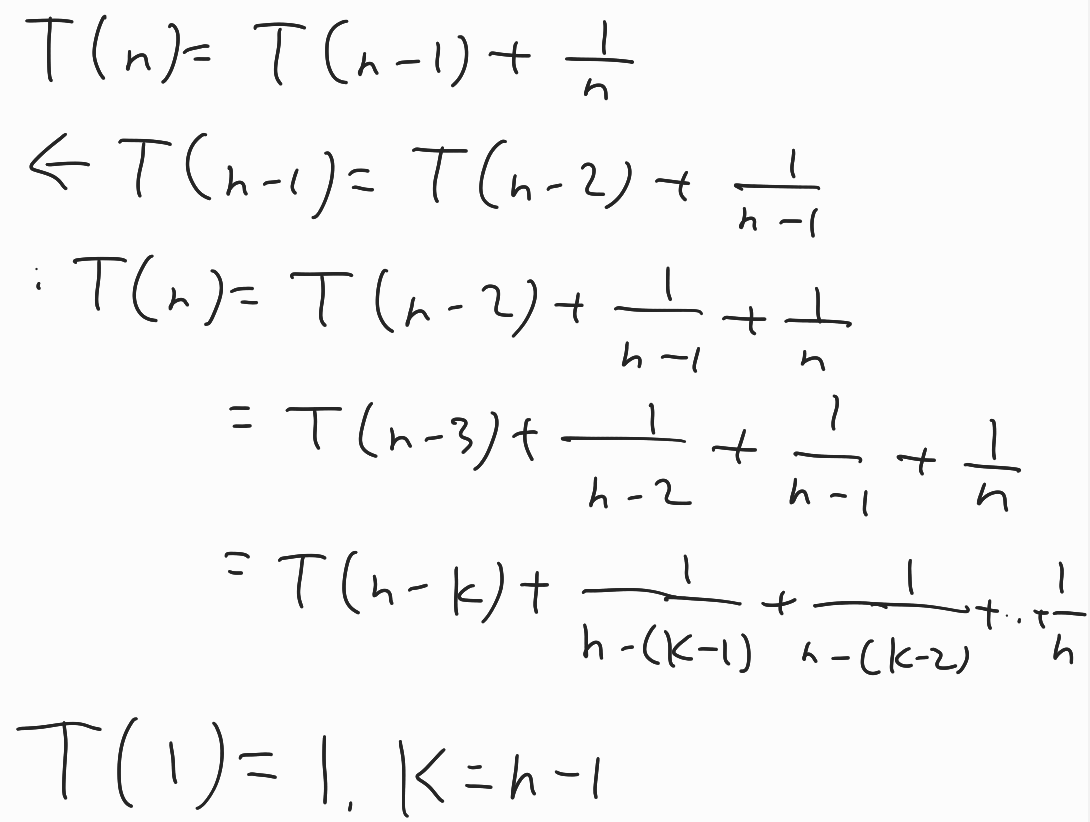 T(n) = T(n-1) + 1/n
← T(n-1) = T(n-2) + 1/(n-1)
: T(n) = T(n-2) + 1/(n-1) + 1/n
= T(n-3) + 1/(n-2) + 1/(n-1) + 1/n
= T(n-k) + 1/(n-(k-1)) + 1/(n-(k-2)) + ... + 1/n
T(1) = 1, K = n-1